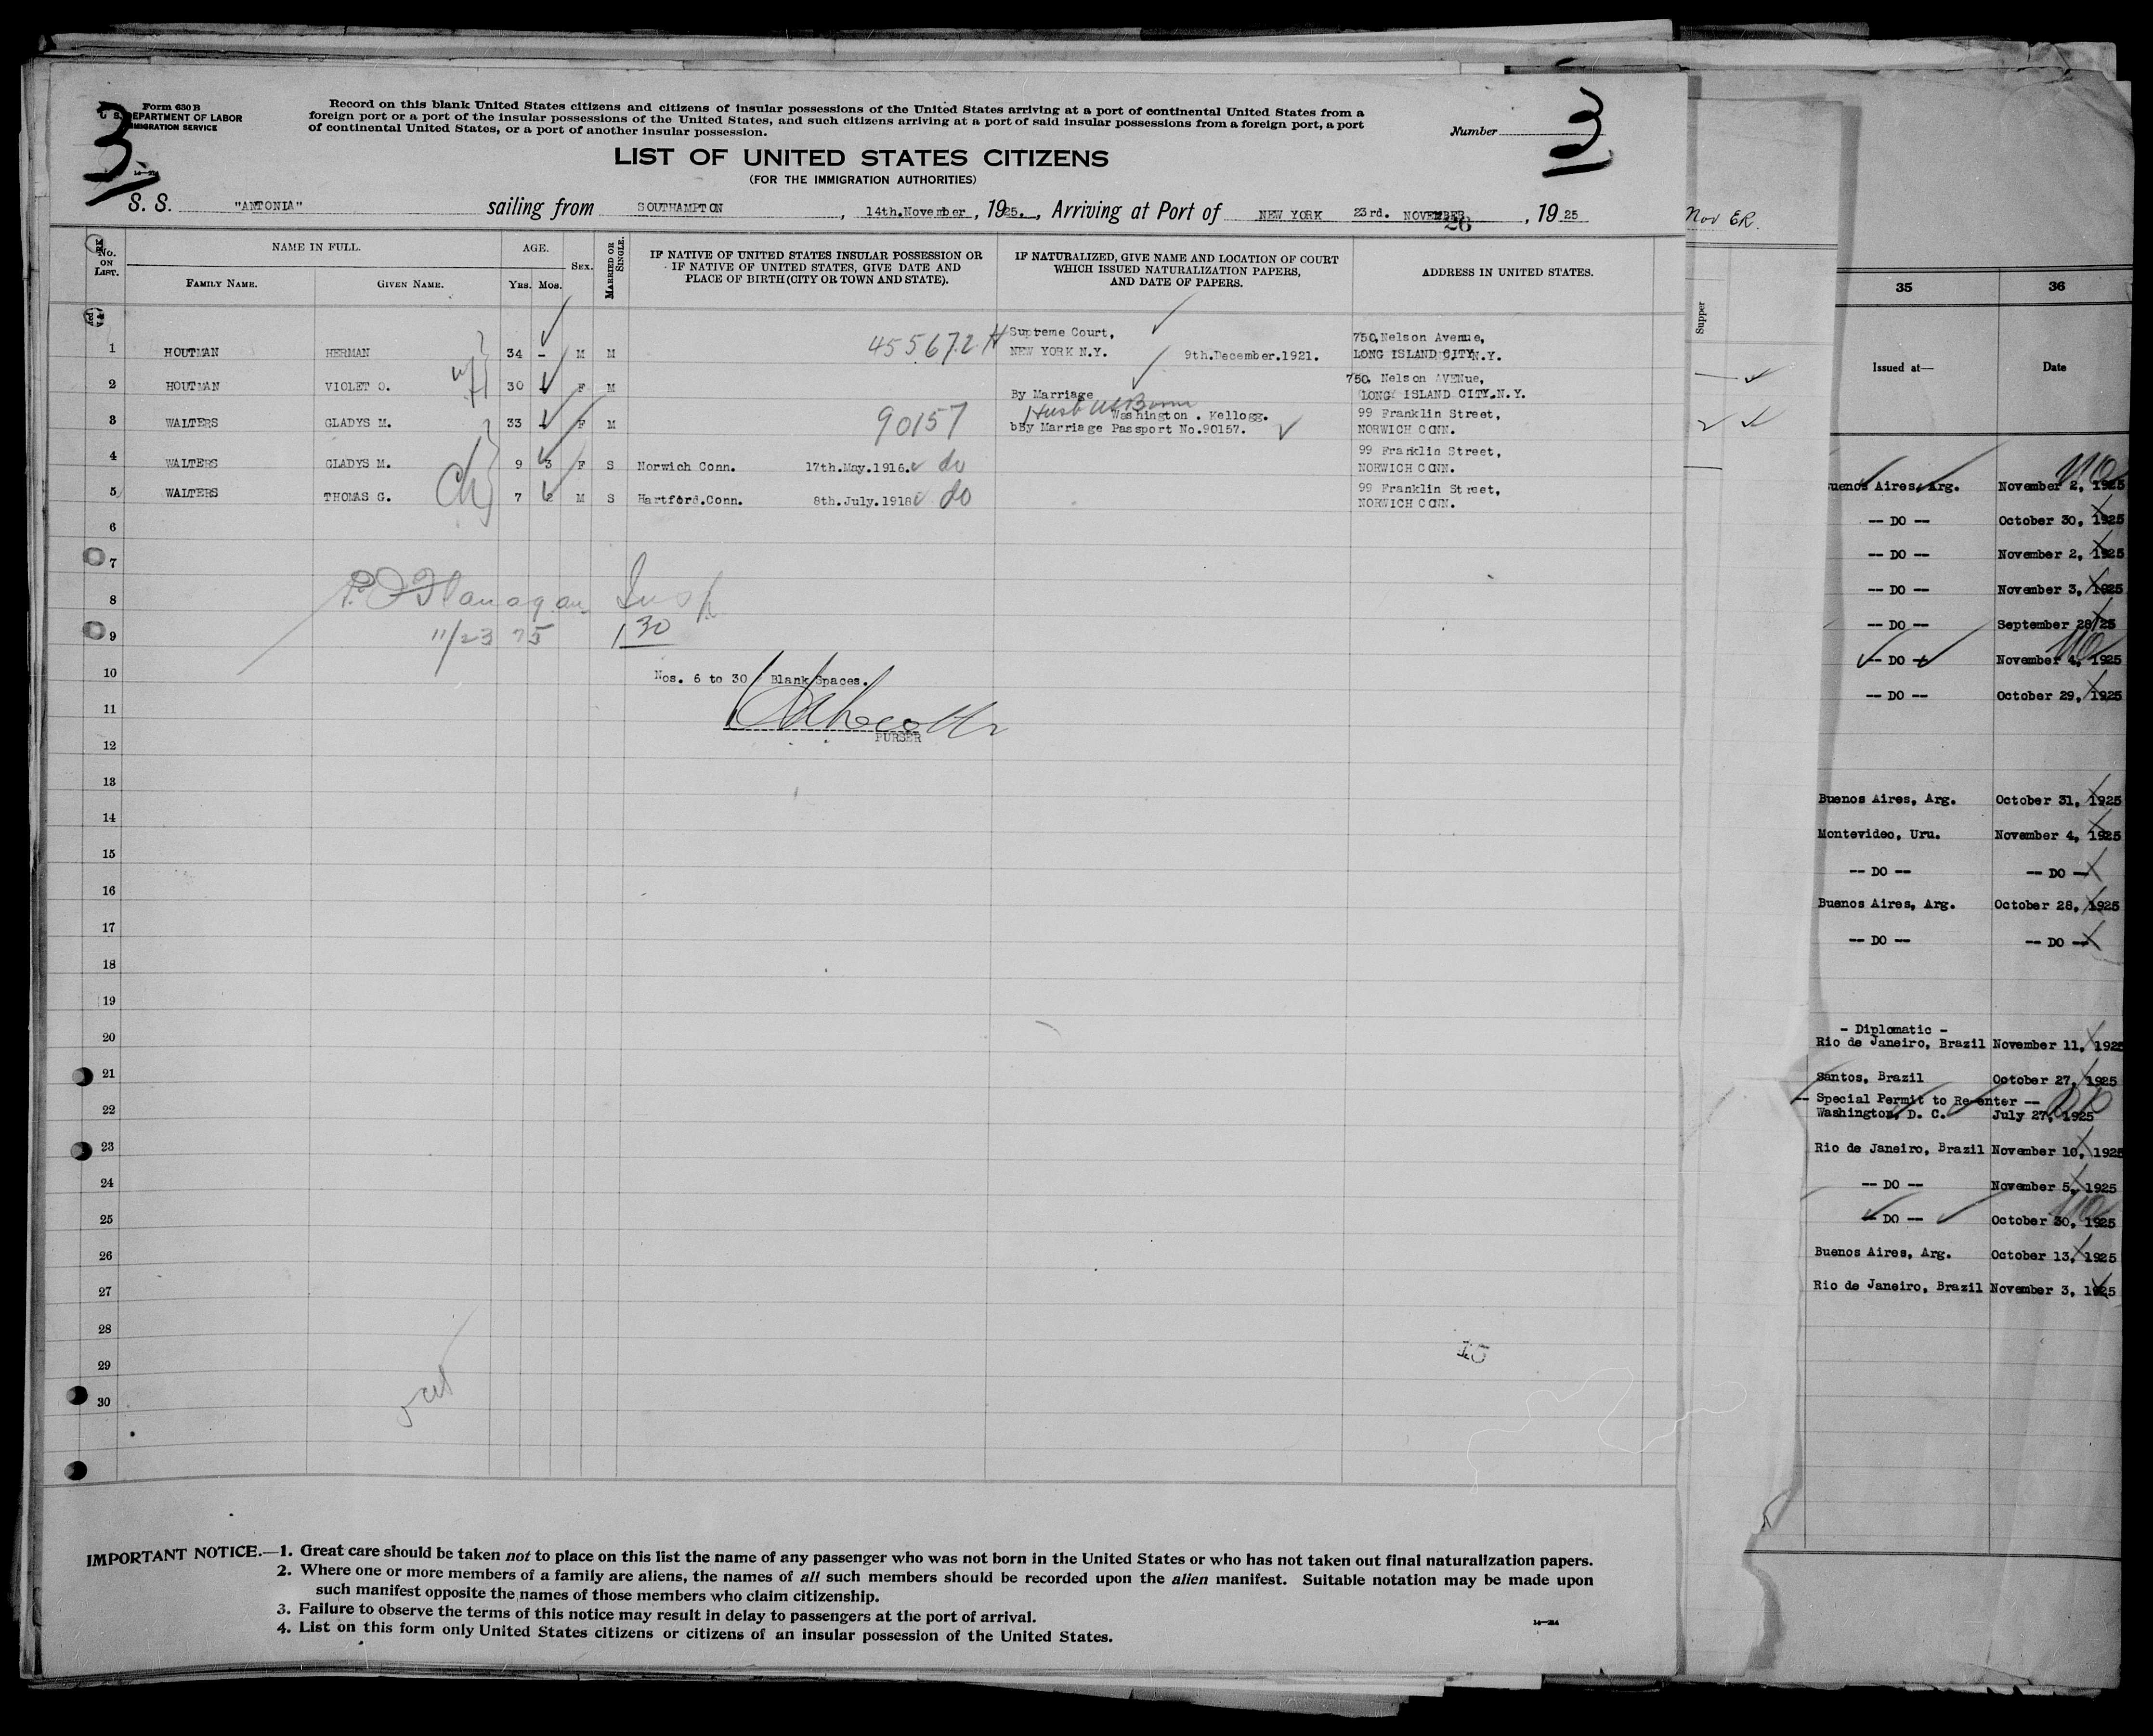 Form 630 B
U. S. DEPARTMENT OF LABOR
IMMIGRATION SERVICE
3
Record on this blank United States citizens and citizens of insular possessions of the United States arriving at a port of continental United States from a
foreign port or a port of the insular possessions of the United States, and such citizens arriving at a port of said insular possessions from a foreign port, a port
of continental United States, or a port of another insular possession.
Number
3
LIST OF UNITED STATES CITIZENS
(FOR THE IMMIGRATION AUTHORITIES)
S. S. "ANTONIA" sailing from SOUTHAMPTON , 14th.November , 1925. , Arriving at Port of NEW YORK 23rd. NOVEMBER , 1925
26
No. ON LIST.
NAME IN FULL.
FAMILY NAME.
GIVEN NAME.
AGE.
YRS. MOS.
SEX.
MARRIED OR SINGLE.
IF NATIVE OF UNITED STATES INSULAR POSSESSION OR
IF NATIVE OF UNITED STATES, GIVE DATE AND
PLACE OF BIRTH (CITY OR TOWN AND STATE).
IF NATURALIZED, GIVE NAME AND LOCATION OF COURT
WHICH ISSUED NATURALIZATION PAPERS,
AND DATE OF PAPERS.
ADDRESS IN UNITED STATES.
1 HOUTMAN HERMAN 34 - M M 455672 H Supreme Court, NEW YORK N.Y. 9th.December.1921. 750,Nelson Avenue, LONG ISLAND CITY N.Y.
2 HOUTMAN VIOLET O. 30 F M By Marriage 750. Nelson AVENue, LONG ISLAND CITY.N.Y.
wf
3 WALTERS GLADYS M. 33 F M 90157 Washington . Kellogg. bBy Marriage Passport No.90157. 99 Franklin Street, NORWICH CONN.
4 WALTERS GLADYS M. 9 3 F S Norwich Conn. 17th.May.1916. do 99 Franklin Street, NORWICH CONN.
Ch
5 WALTERS THOMAS G. 7 M S Hartford.Conn. 8th.July.1918 do 99 Franklin Street, NORWICH CONN.
6
7
8
Flanagan Insp
9
11/23 25 1 30
10
Nos. 6 to 30 Blank Spaces.
11
PURSER
12
13
14
15
16
17
18
19
20
21
22
23
24
25
26
27
28
15
29
30
IMPORTANT NOTICE.—1. Great care should be taken not to place on this list the name of any passenger who was not born in the United States or who has not taken out final naturalization papers.
2. Where one or more members of a family are aliens, the names of all such members should be recorded upon the alien manifest. Suitable notation may be made upon
such manifest opposite the names of those members who claim citizenship.
3. Failure to observe the terms of this notice may result in delay to passengers at the port of arrival.
4. List on this form only United States citizens or citizens of an insular possession of the United States.
Nov ER.
Supper
35 36
Issued at— Date
Buenos Aires, Arg. November 2, 1925
-- DO -- October 30, 1925
-- DO -- November 2, 1925
-- DO -- November 3, 1925
-- DO -- September 28/25
-- DO -- November 4, 1925
-- DO -- October 29, 1925
Buenos Aires, Arg. October 31, 1925
Montevideo, Uru. November 4, 1925
-- DO -- -- DO --
Buenos Aires, Arg. October 28, 1925
-- DO -- -- DO --
- Diplomatic -
Rio de Janeiro, Brazil November 11, 1925
Santos, Brazil October 27, 1925
-- Special Permit to Re-enter --
Washington, D. C. July 27, 1925
Rio de Janeiro, Brazil November 10, 1925
-- DO -- November 5, 1925
-- DO -- October 30, 1925
Buenos Aires, Arg. October 13, 1925
Rio de Janeiro, Brazil November 3, 1925